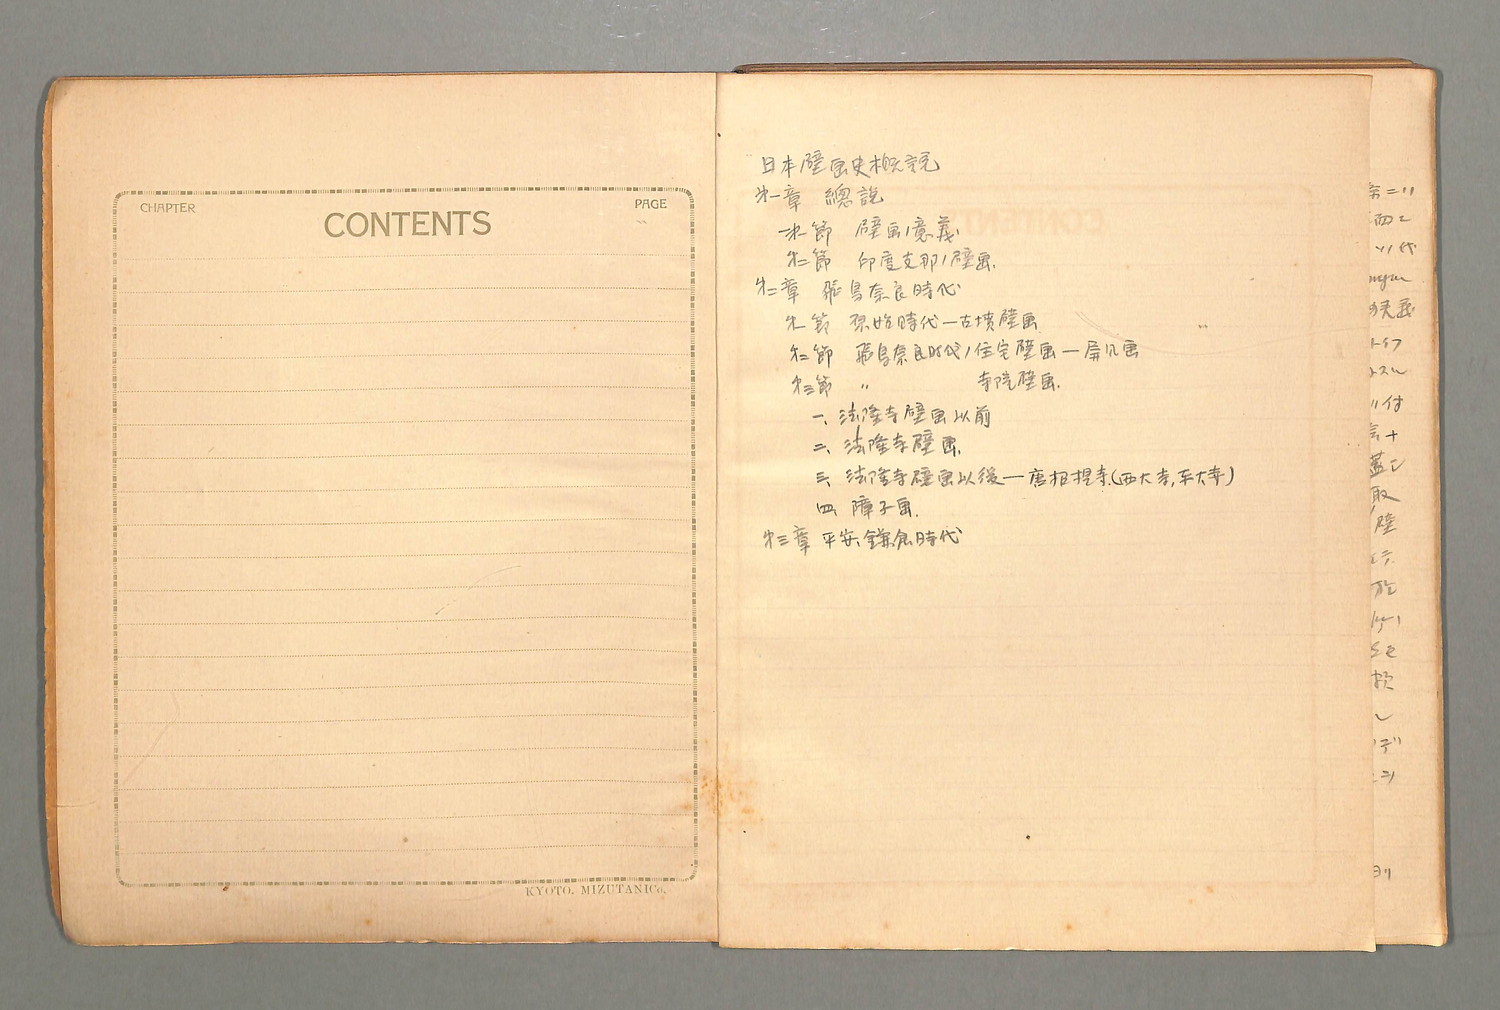 CHAPTER
PAGE
CONTENTS
KYOTO. MIZUTANI Co.
日本壁画史概説
第一章 總説
第一節 壁画ノ意義
第二節 印度支那ノ壁画
第二章 飛鳥奈良時代
第一節 原始時代—古墳壁画
第二節 飛鳥奈良時代ノ住宅壁画—屏風画
第三節 〃 寺院壁画
一、法隆寺壁画以前
二、法隆寺壁画
三、法隆寺壁画以後—唐招提寺(西大寺,東大寺)
四、障子画
第三章 平安、鎌倉時代